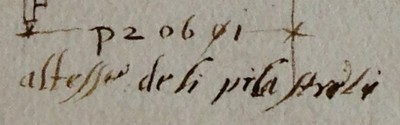 p 2 o 6 91
altesse deli pilastreli